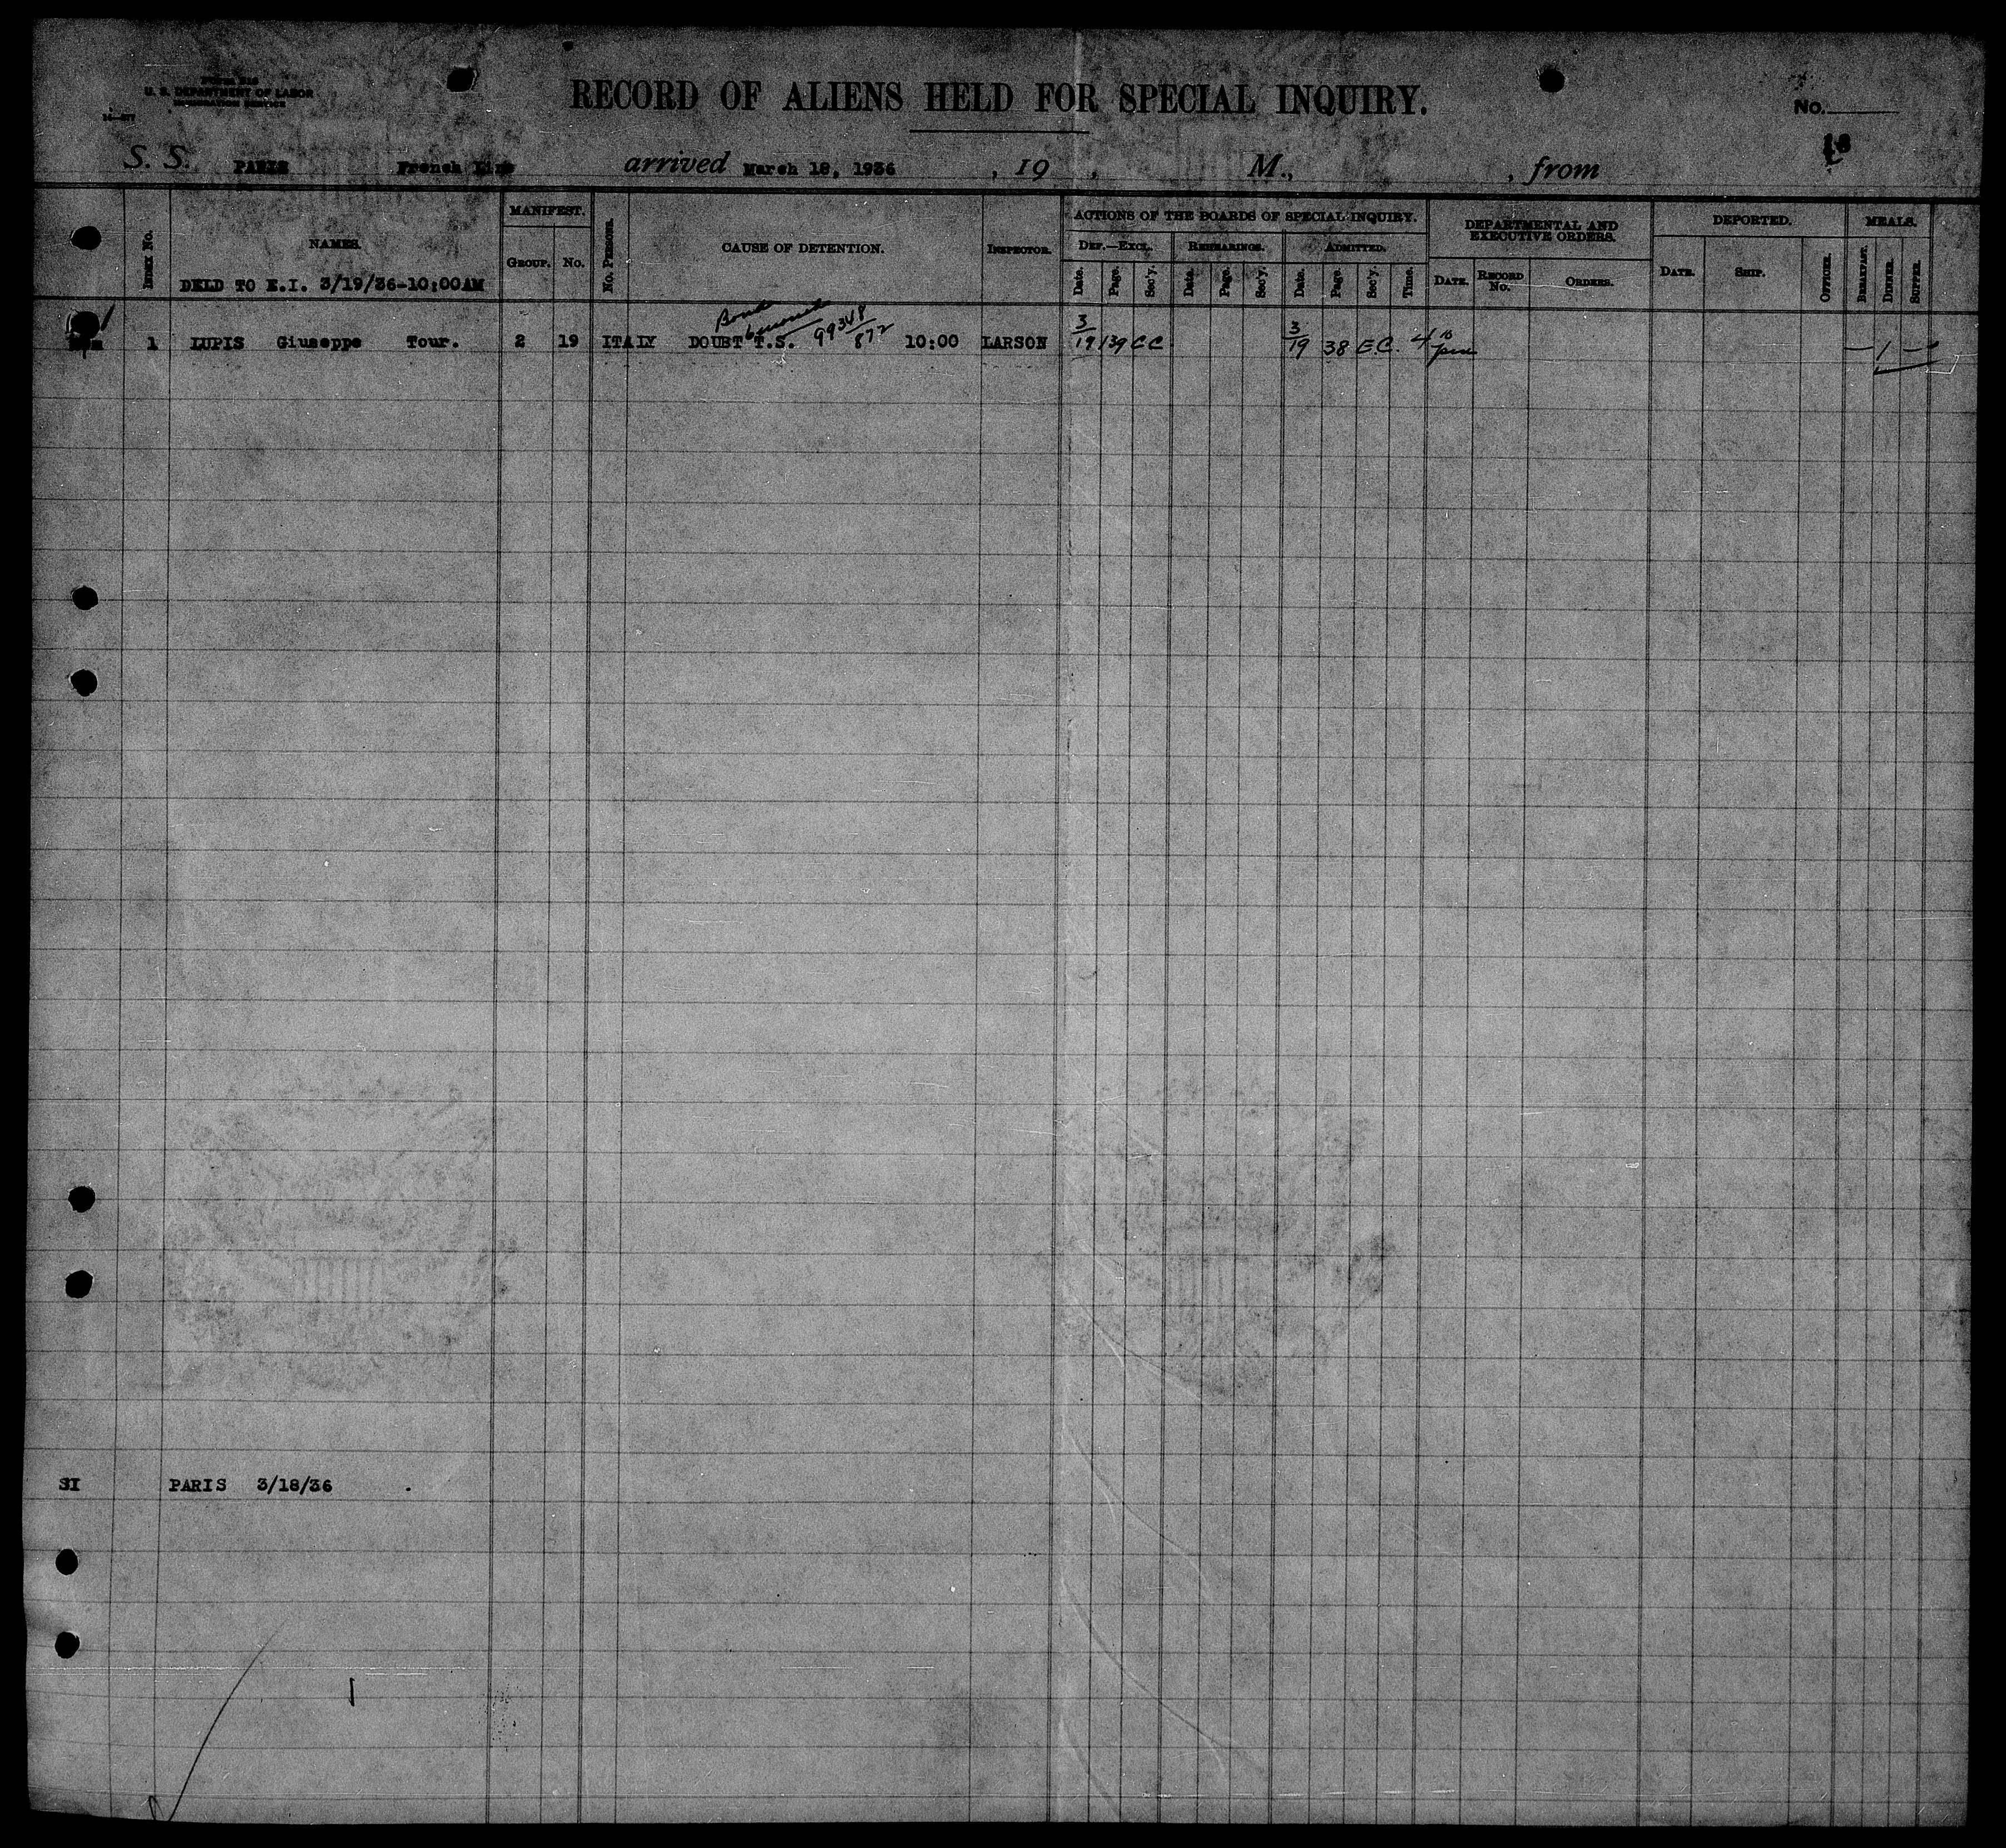 U. S. DEPARTMENT OF LABOR
IMMIGRATION SERVICE
RECORD OF ALIENS HELD FOR SPECIAL INQUIRY.
No.
S. S. PARIS French Line arrived March 18, 1936 , 19 , M., , from
INDEX No.
NAMES.
DELD TO E.I. 3/19/36-10:00AM
MANIFEST.
GROUP. No.
No. PERSONS.
CAUSE OF DETENTION.
INSPECTOR.
ACTIONS OF THE BOARDS OF SPECIAL INQUIRY.
DEF.—EXCL. REHEARINGS. ADMITTED.
Date. Page. Sec'y. Date. Page. Sec'y. Date. Page. Sec'y. Time.
DEPARTMENTAL AND EXECUTIVE ORDERS.
DATE. RECORD No. ORDERS.
DEPORTED.
DATE. SHIP. OFFICER.
MEALS.
BREAKFAST. DINNER. SUPPER.
Bond 6 months 99348/872
1 LUPIS Giuseppe Tour. 2 19 ITALY DOUBT T.S. 10:00 LARSON 3/19 139 CC 3/19 38 E.C. 4 10 pm — 1 —
SI PARIS 3/18/36 .
1